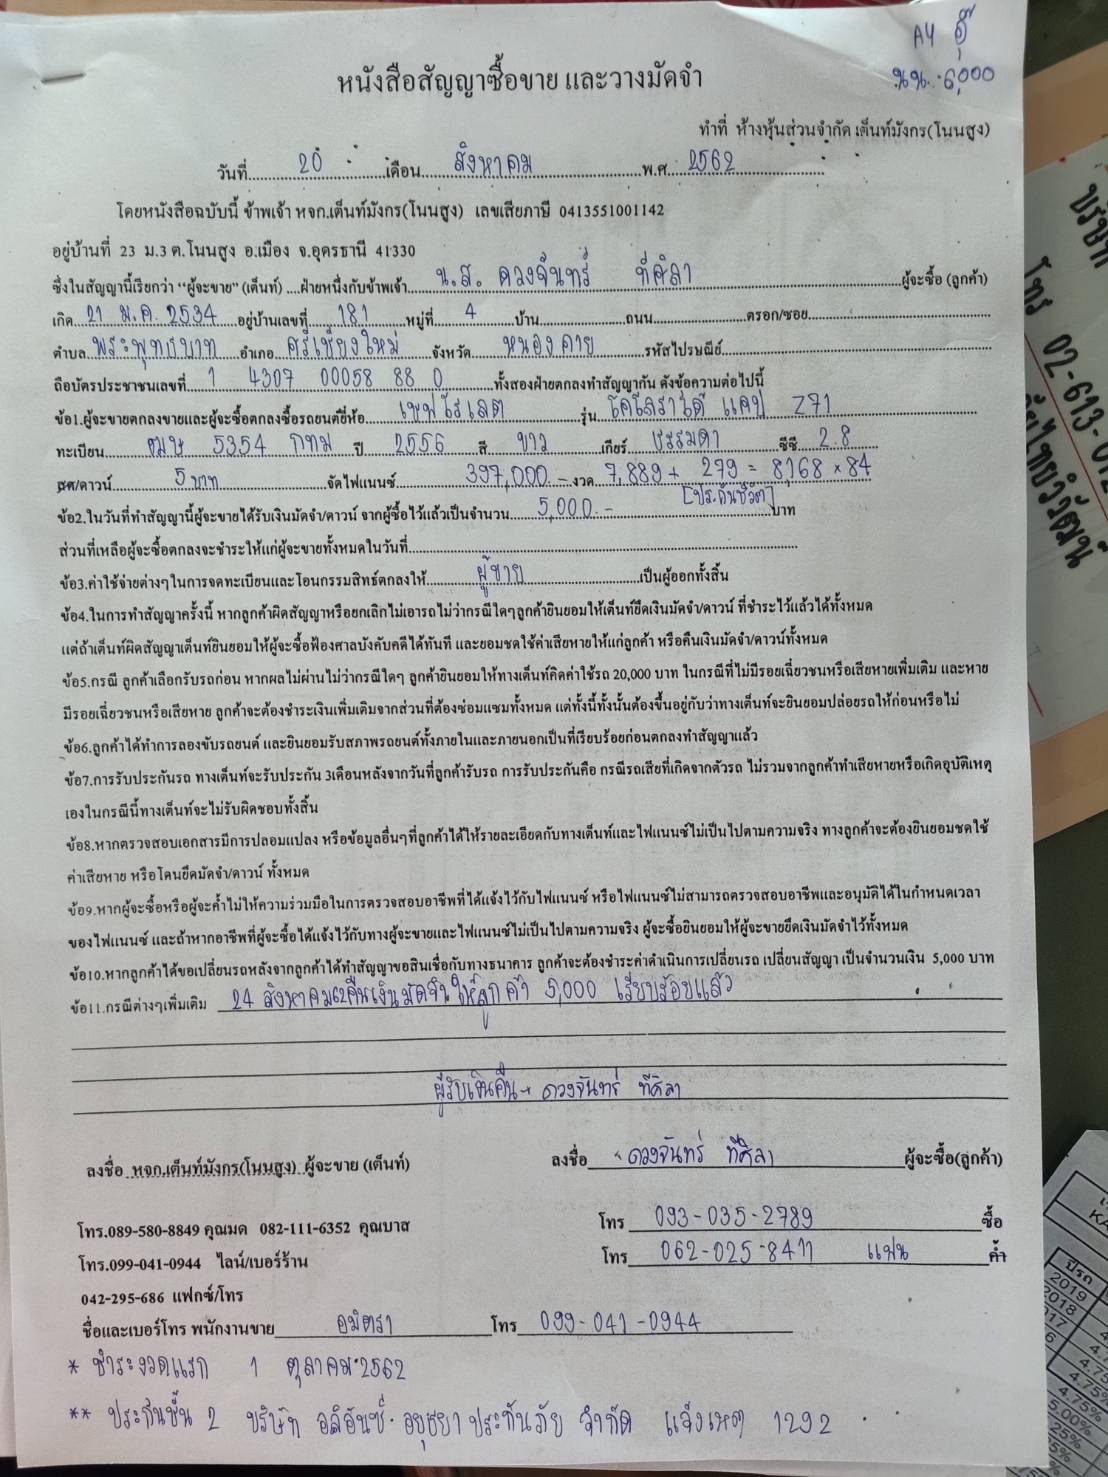 A4 อุ๊
นน. 6,000
หนังสือสัญญาซื้อขาย และวางมัดจำ
ทำที่ ห้างหุ้นส่วนจำกัด เต็นท์มังกร(โนนสูง)
วันที่ 20 เดือน สิงหาคม พ.ศ. 2562
โดยหนังสือฉบับนี้ ข้าพเจ้า หจก.เต็นท์มังกร(โนนสูง) เลขเสียภาษี 0413551001142
อยู่บ้านที่ 23 ม.3 ต.โนนสูง อ.เมือง จ.อุดรธานี 41330
ซึ่งในสัญญานี้เรียกว่า "ผู้จะขาย" (เต็นท์) ....ฝ่ายหนึ่งกับข้าพเจ้า น.ส. ดวงจันทร์ ทีศิลา ผู้จะซื้อ (ลูกค้า)
เกิด 21 ม.ค. 2534 อยู่บ้านเลขที่ 181 หมู่ที่ 4 บ้าน ถนน ตรอก/ซอย
ตำบล พระพุทธบาท อำเภอ ศรีเชียงใหม่ จังหวัด หนองคาย รหัสไปรษณีย์
ถือบัตรประชาชนเลขที่ 1 4307 00058 88 0 ทั้งสองฝ่ายตกลงทำสัญญากัน ดังข้อความต่อไปนี้
ข้อ1.ผู้จะขายตกลงขายและผู้จะซื้อตกลงซื้อรถยนต์ยี่ห้อ เชฟโรเลต รุ่น โคโลราโด้ แคป Z71
ทะเบียน ฒษ 5354 กทม ปี 2556 สี ขาว เกียร์ ธรรมดา ซีซี 2.8
สด/ดาวน์ 5 บาท จัดไฟแนนซ์ 397,000.- งวด 7,889 + 279 = 8,168 × 84
[ประกันชีวิต]
ข้อ2.ในวันที่ทำสัญญานี้ผู้จะขายได้รับเงินมัดจำ/ดาวน์ จากผู้ซื้อไว้แล้วเป็นจำนวน 5,000.- บาท
ส่วนที่เหลือผู้จะซื้อตกลงจะชำระให้แก่ผู้จะขายทั้งหมดในวันที่
ข้อ3.ค่าใช้จ่ายต่างๆในการจดทะเบียนและโอนกรรมสิทธ์ตกลงให้ ผู้ขาย เป็นผู้ออกทั้งสิ้น
ข้อ4.ในการทำสัญญาครั้งนี้ หากลูกค้าผิดสัญญาหรือยกเลิกไม่เอารถไม่ว่ากรณีใดๆลูกค้ายินยอมให้เต็นท์ยึดเงินมัดจำ/ดาวน์ ที่ชำระไว้แล้วได้ทั้งหมด
แต่ถ้าเต็นท์ผิดสัญญาเต็นท์ยินยอมให้ผู้จะซื้อฟ้องศาลบังคับคดีได้ทันที และยอมชดใช้ค่าเสียหายให้แก่ลูกค้า หรือคืนเงินมัดจำ/ดาวน์ทั้งหมด
ข้อ5.กรณี ลูกค้าเลือกรับรถก่อน หากผลไม่ผ่านไม่ว่ากรณีใดๆ ลูกค้ายินยอมให้ทางเต็นท์คิดค่าใช้รถ 20,000 บาท ในกรณีที่ไม่มีรอยเฉี่ยวชนหรือเสียหายเพิ่มเติม และหาย
มีรอยเฉี่ยวชนหรือเสียหาย ลูกค้าจะต้องชำระเงินเพิ่มเติมจากส่วนที่ต้องซ่อมแซมทั้งหมด แต่ทั้งนี้ทั้งนั้นต้องขึ้นอยู่กับว่าทางเต็นท์จะยินยอมปล่อยรถให้ก่อนหรือไม่
ข้อ6.ลูกค้าได้ทำการลองขับรถยนต์ และยินยอมรับสภาพรถยนต์ทั้งภายในและภายนอกเป็นที่เรียบร้อยก่อนตกลงทำสัญญาแล้ว
ข้อ7.การรับประกันรถ ทางเต็นท์จะรับประกัน 3เดือนหลังจากวันที่ลูกค้ารับรถ การรับประกันคือ กรณีรถเสียที่เกิดจากตัวรถ ไม่รวมจากลูกค้าทำเสียหายหรือเกิดอุบัติเหตุ
เองในกรณีนี้ทางเต็นท์จะไม่รับผิดชอบทั้งสิ้น
ข้อ8.หากตรวจสอบเอกสารมีการปลอมแปลง หรือข้อมูลอื่นๆที่ลูกค้าได้ให้รายละเอียดกับทางเต็นท์และไฟแนนซ์ไม่เป็นไปตามความจริง ทางลูกค้าจะต้องยินยอมชดใช้
ค่าเสียหาย หรือโดนยึดมัดจำ/ดาวน์ ทั้งหมด
ข้อ9.หากผู้จะซื้อหรือผู้จะค้ำไม่ให้ความร่วมมือในการตรวจสอบอาชีพที่ได้แจ้งไว้กับไฟแนนซ์ หรือไฟแนนซ์ไม่สามารถตรวจสอบอาชีพและอนุมัติได้ในกำหนดเวลา
ของไฟแนนซ์ และถ้าหากอาชีพที่ผู้จะซื้อได้แจ้งไว้กับทางผู้จะขายและไฟแนนซ์ไม่เป็นไปตามความจริง ผู้จะซื้อยินยอมให้ผู้จะขายยึดเงินมัดจำไว้ทั้งหมด
ข้อ10.หากลูกค้าได้ขอเปลี่ยนรถหลังจากลูกค้าได้ทำสัญญาขอสินเชื่อกับทางธนาคาร ลูกค้าจะต้องชำระค่าดำเนินการเปลี่ยนรถ เปลี่ยนสัญญา เป็นจำนวนเงิน 5,000 บาท
ข้อ11.กรณีต่างๆเพิ่มเติม 24 สิงหาคม62คืนเงินมัดจำให้ลูกค้า 5,000 เรียบร้อยแล้ว
ผู้รับเงินคืน → ดวงจันทร์ ทีศิลา
ลงชื่อ หจก.เต็นท์มังกร(โนนสูง) ผู้จะขาย (เต็นท์) ลงชื่อ ดวงจันทร์ ทีศิลา ผู้จะซื้อ(ลูกค้า)
โทร.089-580-8849 คุณมด 082-111-6352 คุณบาส โทร 093-035-2789 ซื้อ
โทร.099-041-0944 ไลน์/เบอร์ร้าน โทร 062-025-8411 แฟน ค้ำ
042-295-686 แฟกซ์/โทร
ชื่อและเบอร์โทร พนักงานขาย อมิตรา โทร 099-041-0944
* ชำระงวดแรก 1 ตุลาคม 2562
** ประกันชั้น 2 บริษัท อลิอันซ์ อยุธยา ประกันภัย จำกัด แจ้งเหตุ 1292
บริษัท
โทร 02-613-01
ไทยวิวัฒน์
ปีรถ
2019
2018